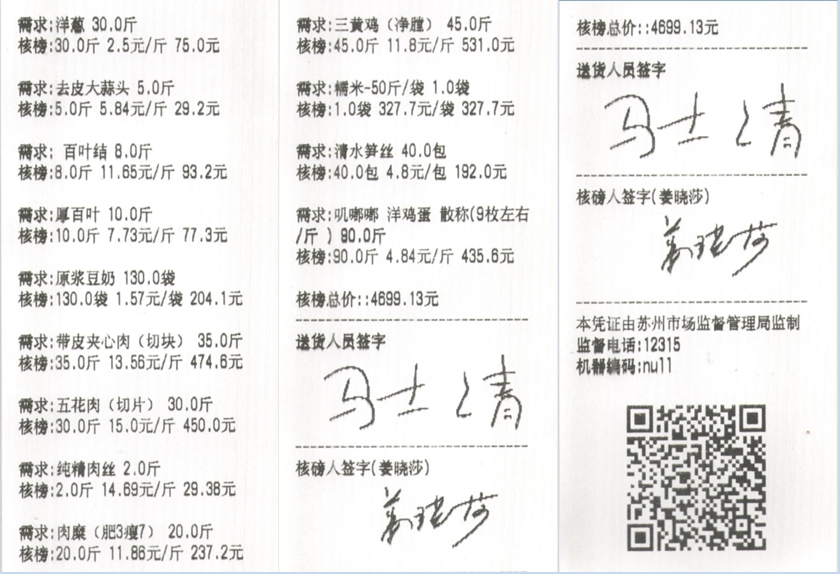 需求:洋葱 30.0斤
核榜:30.0斤 2.5元/斤 75.0元
需求:去皮大蒜头 5.0斤
核榜:5.0斤 5.84元/斤 29.2元
需求: 百叶结 8.0斤
核榜:8.0斤 11.65元/斤 93.2元
需求:厚百叶 10.0斤
核榜:10.0斤 7.73元/斤 77.3元
需求:原浆豆奶 130.0袋
核榜:130.0袋 1.57元/袋 204.1元
需求:带皮夹心肉（切块） 35.0斤
核榜:35.0斤 13.56元/斤 474.6元
需求:五花肉（切片） 30.0斤
核榜:30.0斤 15.0元/斤 450.0元
需求:纯精肉丝 2.0斤
核榜:2.0斤 14.69元/斤 29.38元
需求:肉糜（肥3瘦7） 20.0斤
核榜:20.0斤 11.86元/斤 237.2元
需求:三黄鸡（净膛） 45.0斤
核榜:45.0斤 11.8元/斤 531.0元
需求:糯米-50斤/袋 1.0袋
核榜:1.0袋 327.7元/袋 327.7元
需求:清水笋丝 40.0包
核榜:40.0包 4.8元/包 192.0元
需求:叽嘟嘟 洋鸡蛋 散称(9枚左右
/斤 ) 90.0斤
核榜:90.0斤 4.84元/斤 435.6元
核榜总价::4699.13元
送货人员签字
马士清
核磅人签字(姜晓莎)
姜晓莎
核榜总价::4699.13元
送货人员签字
马士清
核磅人签字(姜晓莎)
姜晓莎
本凭证由苏州市场监督管理局监制
监督电话:12315
机器编码:null